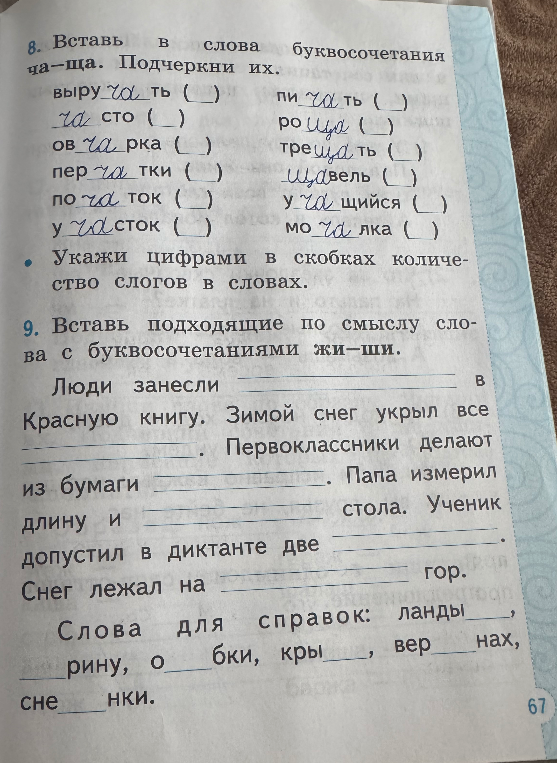 8. Вставь в слова буквосочетания
ча–ща. Подчеркни их.
выру ча ть (__) пи ча ть (__)
ча сто (__) ро ща (__)
ов ча рка (__) тре ща ть (__)
пер ча тки (__) ща вель (__)
по ча ток (__) у ча щийся (__)
у ча сток (__) мо ча лка (__)
• Укажи цифрами в скобках количе-
ство слогов в словах.
9. Вставь подходящие по смыслу сло-
ва с буквосочетаниями жи–ши.
Люди занесли ________ в
Красную книгу. Зимой снег укрыл все
________. Первоклассники делают
из бумаги ________. Папа измерил
длину и ________ стола. Ученик
допустил в диктанте две ________.
Снег лежал на ________ гор.
Слова для справок: ланды___,
___рину, о___бки, кры___, вер___нах,
сне___нки.
67